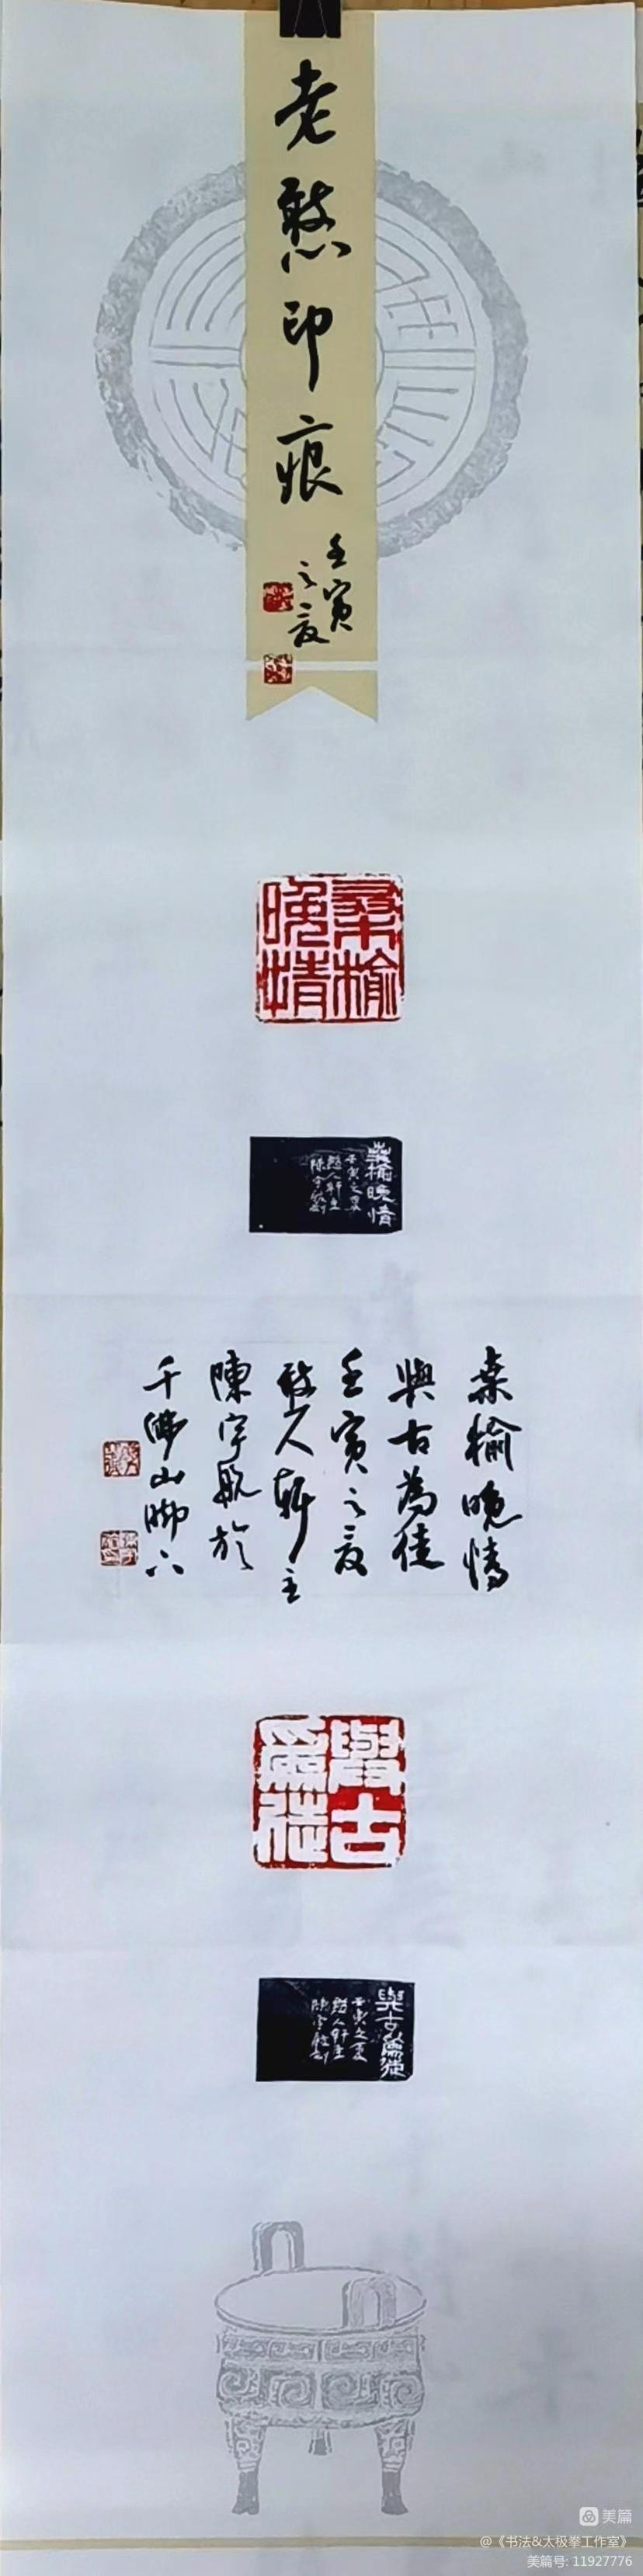 老憨印痕
壬寅
之夏
桑榆晚情
桑榆晚情
壬寅之夏
憨人轩主
陈宇航刻
桑榆晚情
與古為徒
壬寅之夏
憨人軒主
陳宇航於
千佛山脚下
與古爲徒
與古爲徒
壬寅之夏
憨人轩主
陈宇航刻
美篇
@《书法&太极拳工作室》
美篇号: 11927776